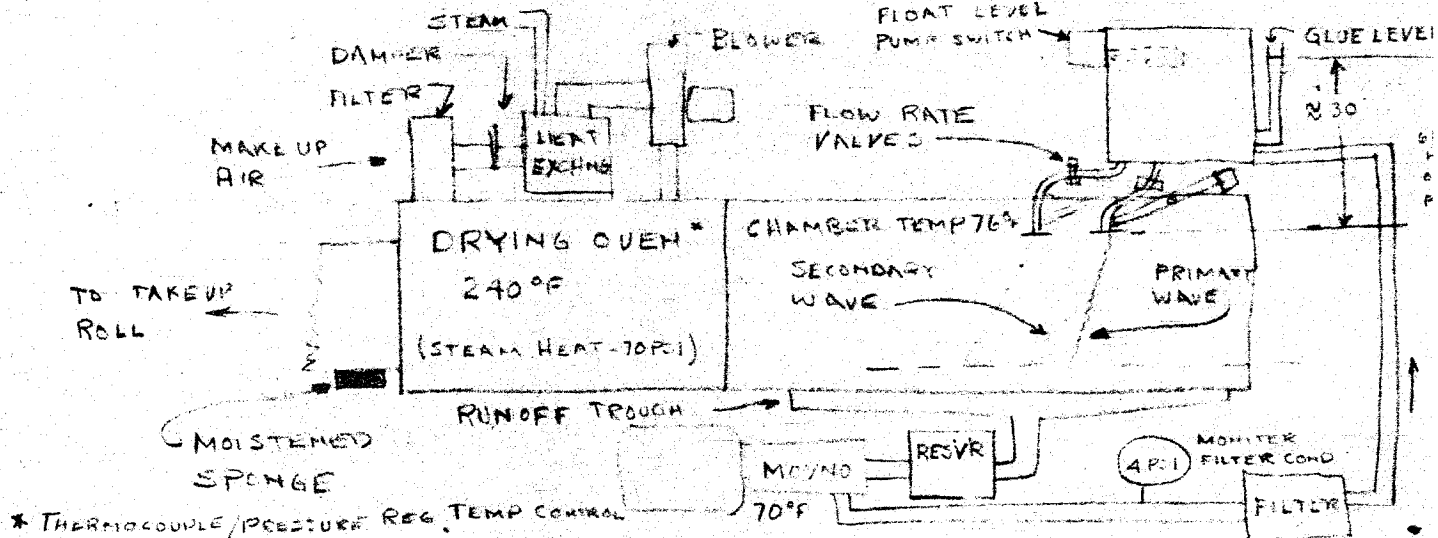 STEAM
DAMPER
FILTER
MAKE UP
AIR
HEAT
EXCHNG
BLOWER
FLOAT LEVEL
PUMP SWITCH
GLUE LEVEL
≈ 30
FLOW RATE
VALVES
DRYING OVEN *
240°F
(STEAM HEAT-70PSI)
CHAMBER TEMP 76°F
SECONDARY
WAVE
PRIMARY
WAVE
TO TAKEUP
ROLL
RUNOFF TROUGH
MOISTENED
SPONGE
RESVR
MOYNO
70°F
4PSI
MONITER
FILTER COND
FILTER
* THERMOCOUPLE/PRESSURE REG. TEMP CONTROL